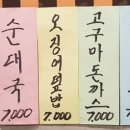 순대국
7,000
오징어덮밥
7,000
고구마돈까스
7,000